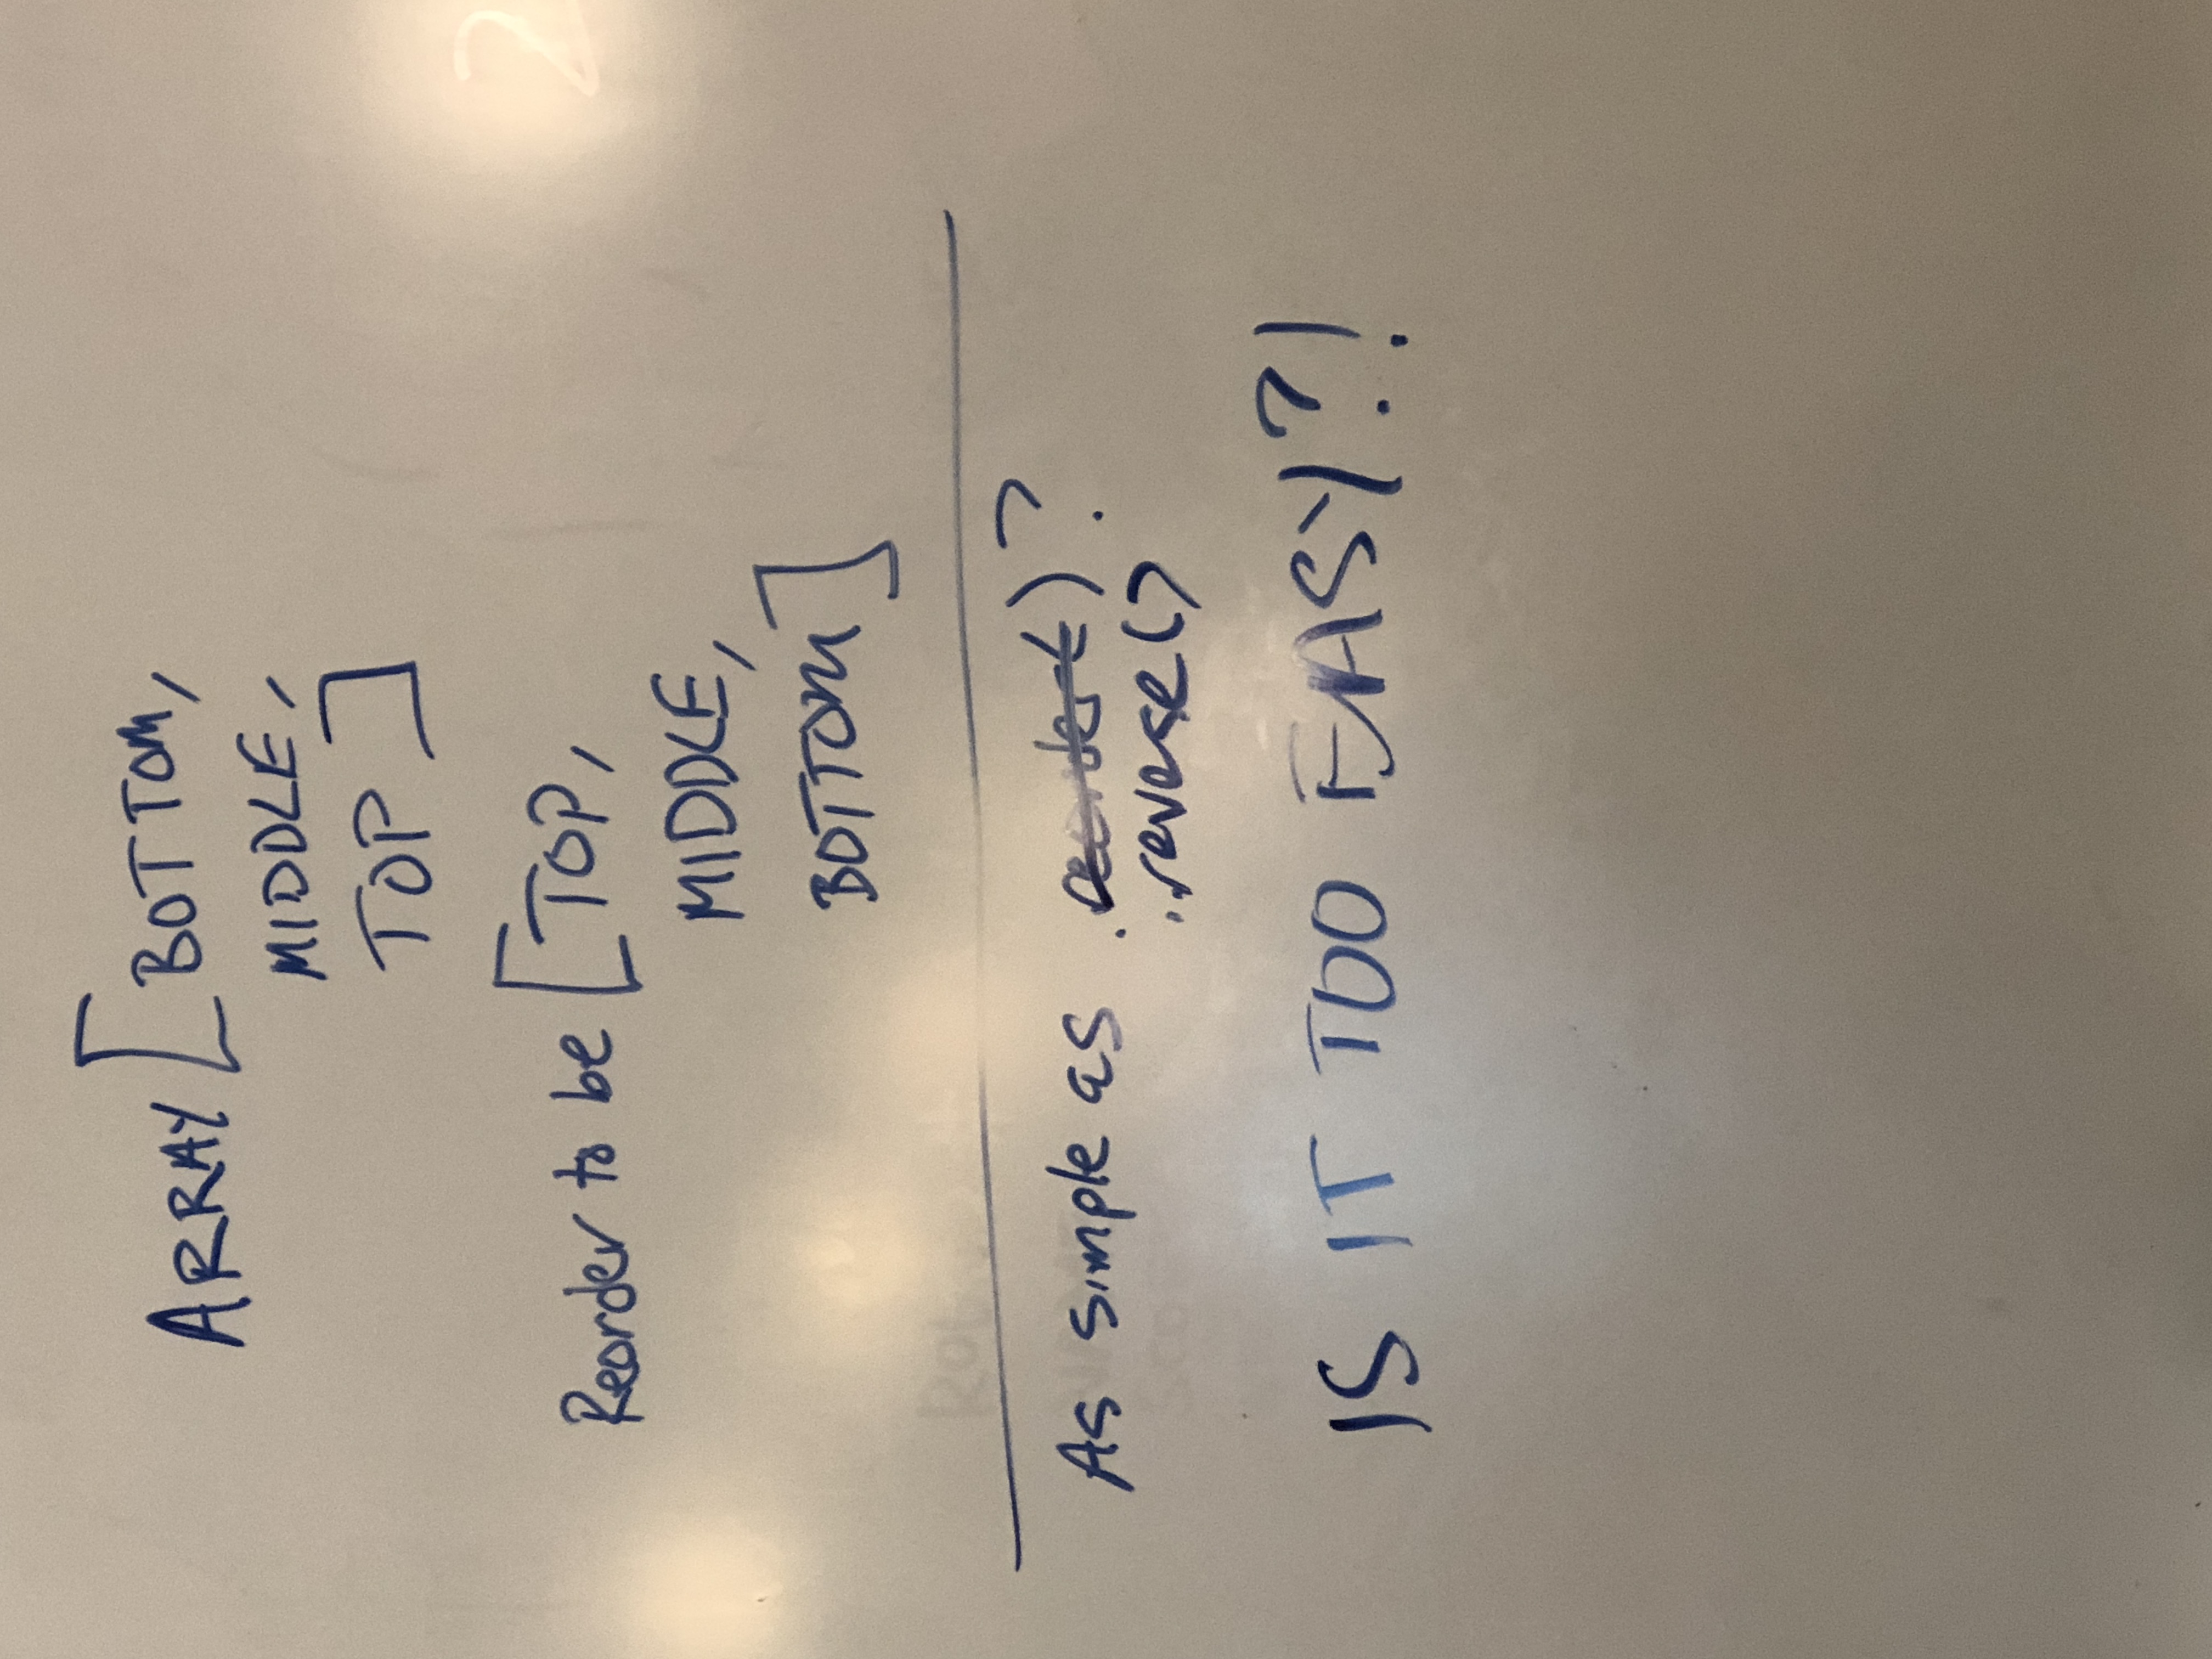 ARRAY [BOTTOM,
MIDDLE,
TOP]
Reorder to be [TOP,
MIDDLE,
BOTTOM]
As simple as .reorder()?
.reverse()
IS IT TOO EASY?!
2